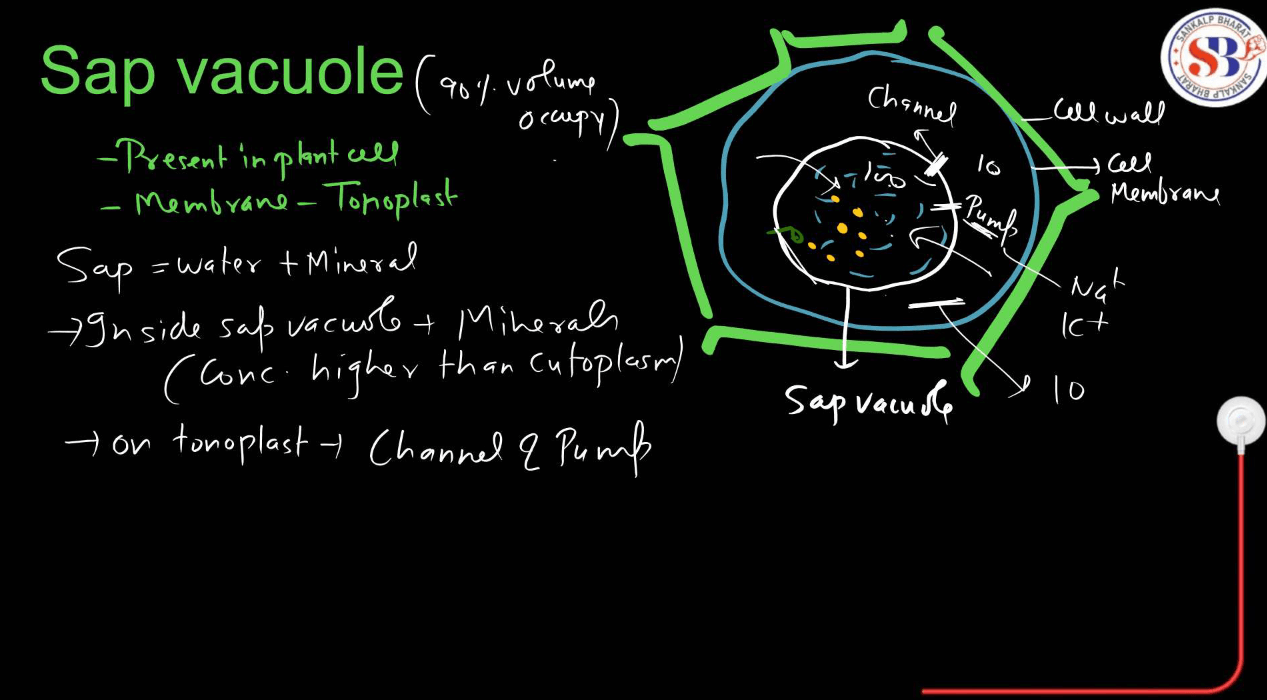 Sap vacuole (90% volume
occupy)
- Present in plant cell
- Membrane - Tonoplast
Sap = water + Mineral
→ Inside sap vacuole + Minerals
(Conc. higher than cytoplasm)
→ on tonoplast → Channel & Pump
Channel
100
10
Pump
Cell wall
Cell
Membrane
Na+
K+
10
Sap vacuole
SANKALP BHARAT
SB
SANKALP BHARAT